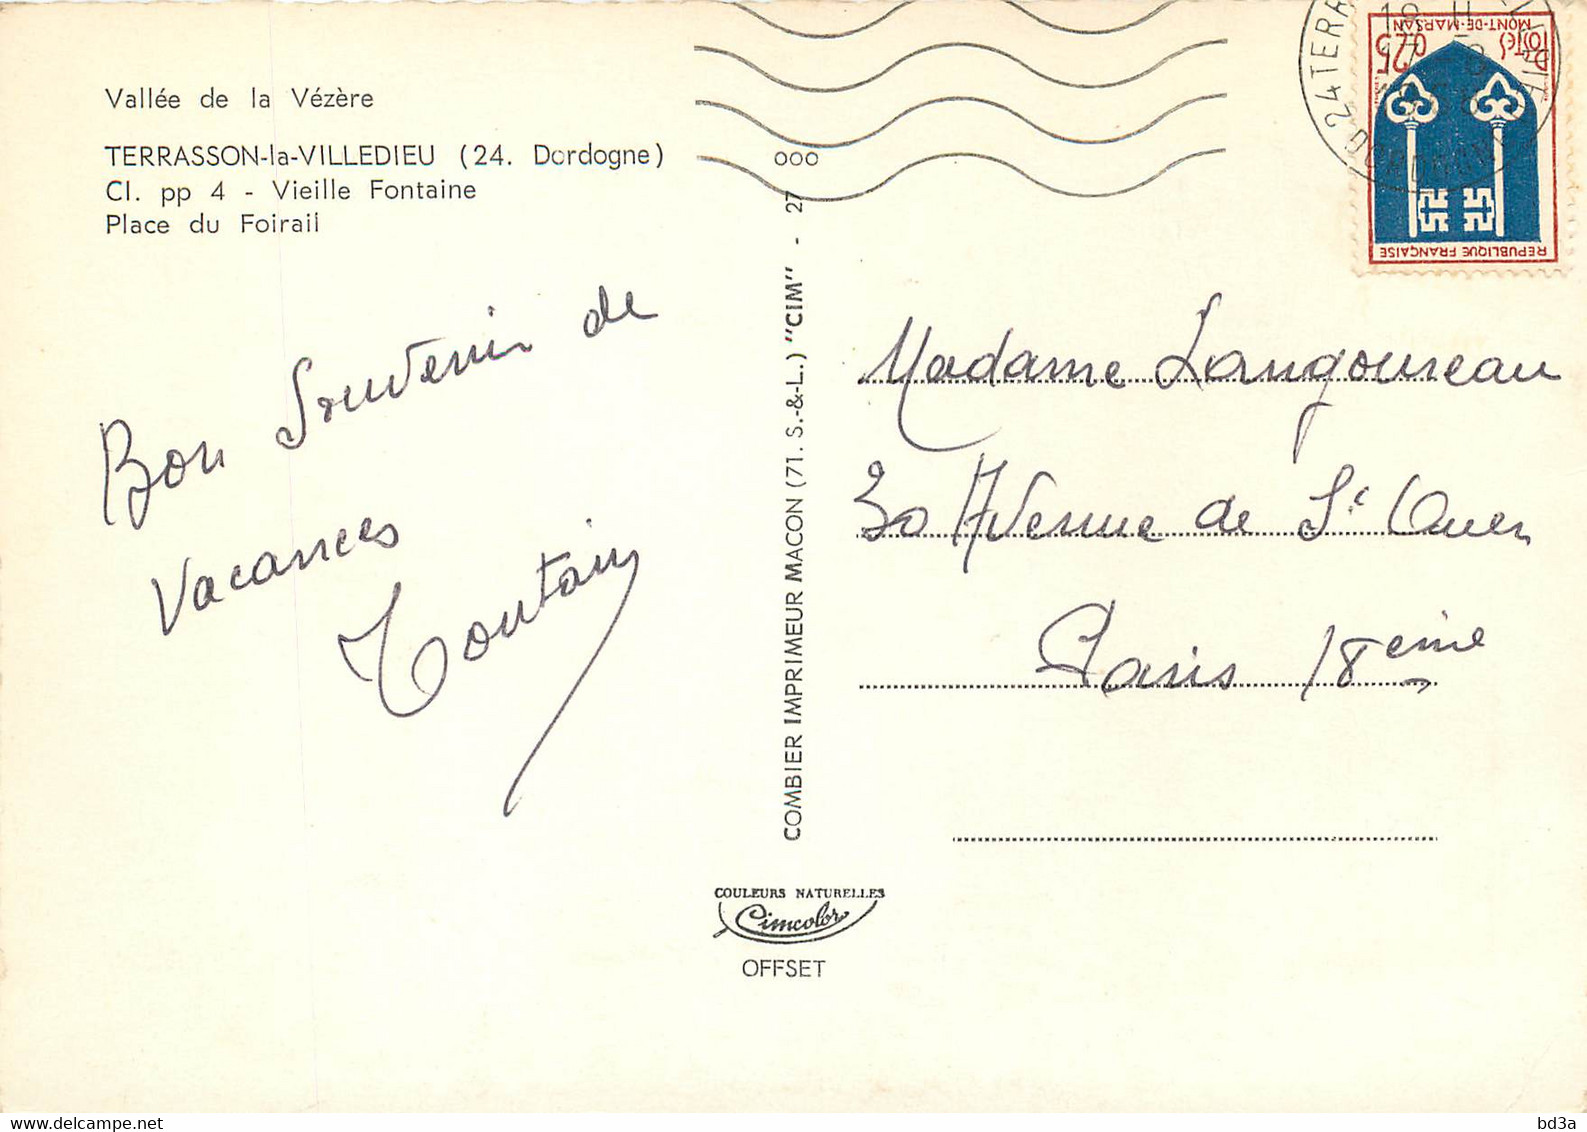 Vallée de la Vézère
TERRASSON-la-VILLEDIEU (24. Dordogne)
Cl. pp 4 - Vieille Fontaine
Place du Foirail
Bon Souvenir de
Vacances
Toutain
COMBIER IMPRIMEUR MACON (71. S.-&-L.) "CIM" - 27
000
COULEURS NATURELLES
Cimcolor
OFFSET
24 TERR
DORDOGNE
MONT-DE-MARSAN
POSTES
0,25
REPUBLIQUE FRANÇAISE
Madame Langoureau
30 Avenue de St Ouen
Paris 18eme
delcampe.net
bd3a